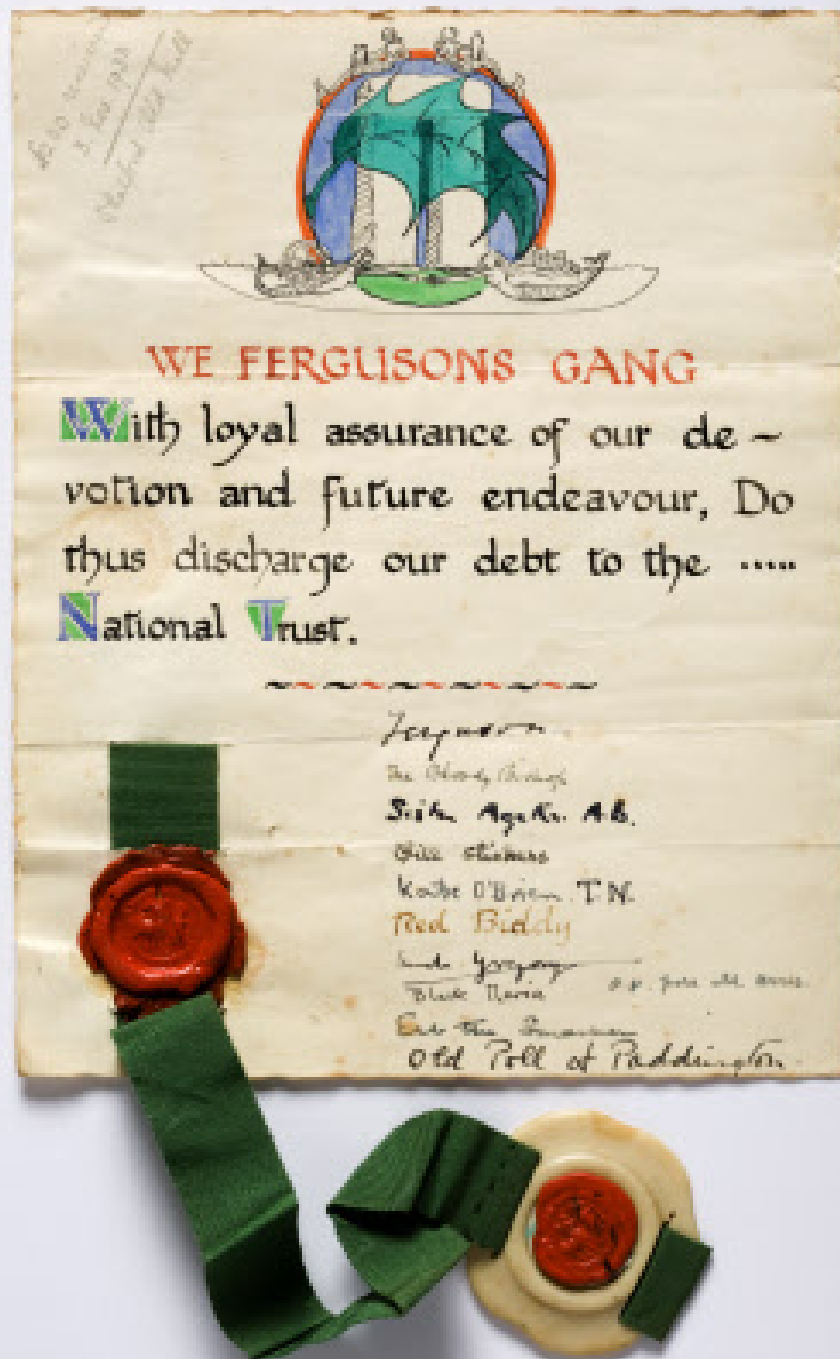 1933
Old Mill
WE FERGUSONS GANG
With loyal assurance of our de~
votion and future endeavour, Do
thus discharge our debt to the .....
National Trust.
Ferguson.
The Bloody
Sister Agatha. A.B.
Bill Stickers
Kate O'Brien. T.N.
Red Biddy
Gregory
Black Maria
See the
Old Poll of Paddington.